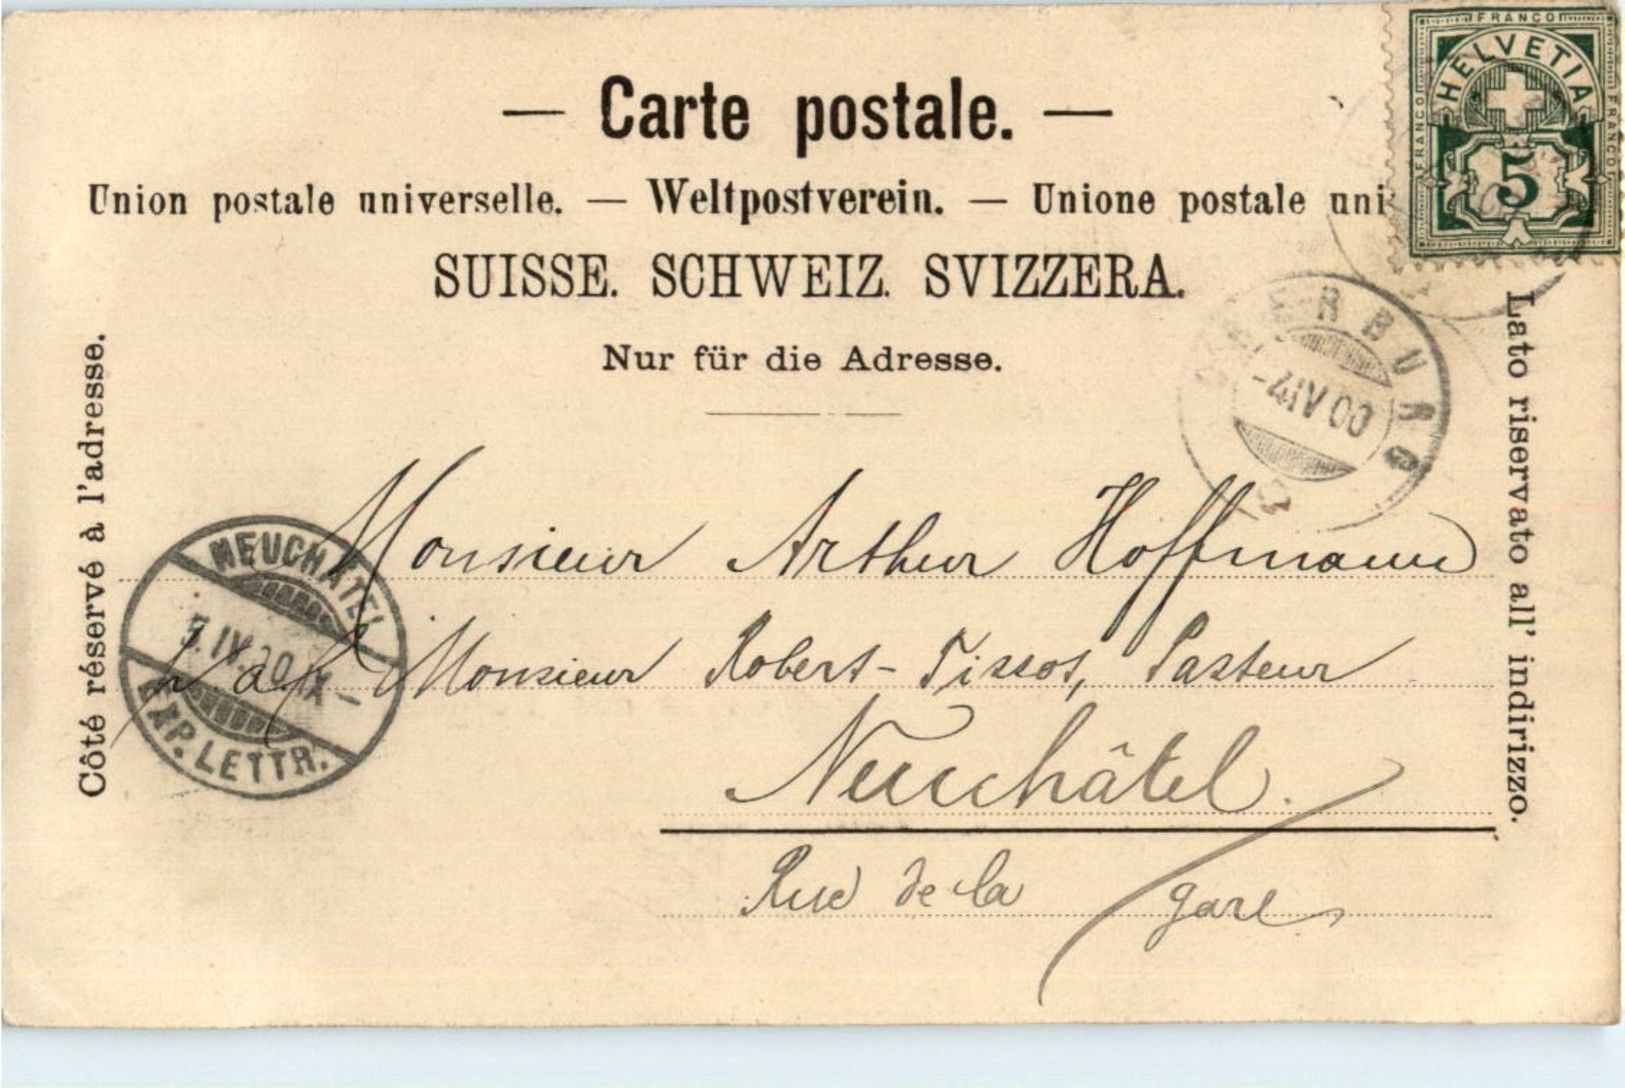 — Carte postale. —
Union postale universelle. — Weltpostverein. — Unione postale uni
SUISSE. SCHWEIZ. SVIZZERA.
Nur für die Adresse.
FRANCO
FRANCO
FRANCO
HELVETIA
5
-4 IV 00
Côté réservé à l'adresse.
Lato riservato all' indirizzo.
NEUCHATEL
5. IV. 00 IX –
EXP. LETTR.
Monsieur Arthur Hoffmann
Monsieur Robert-Tissot, Pasteur
Neuchâtel.
Rue de la gare